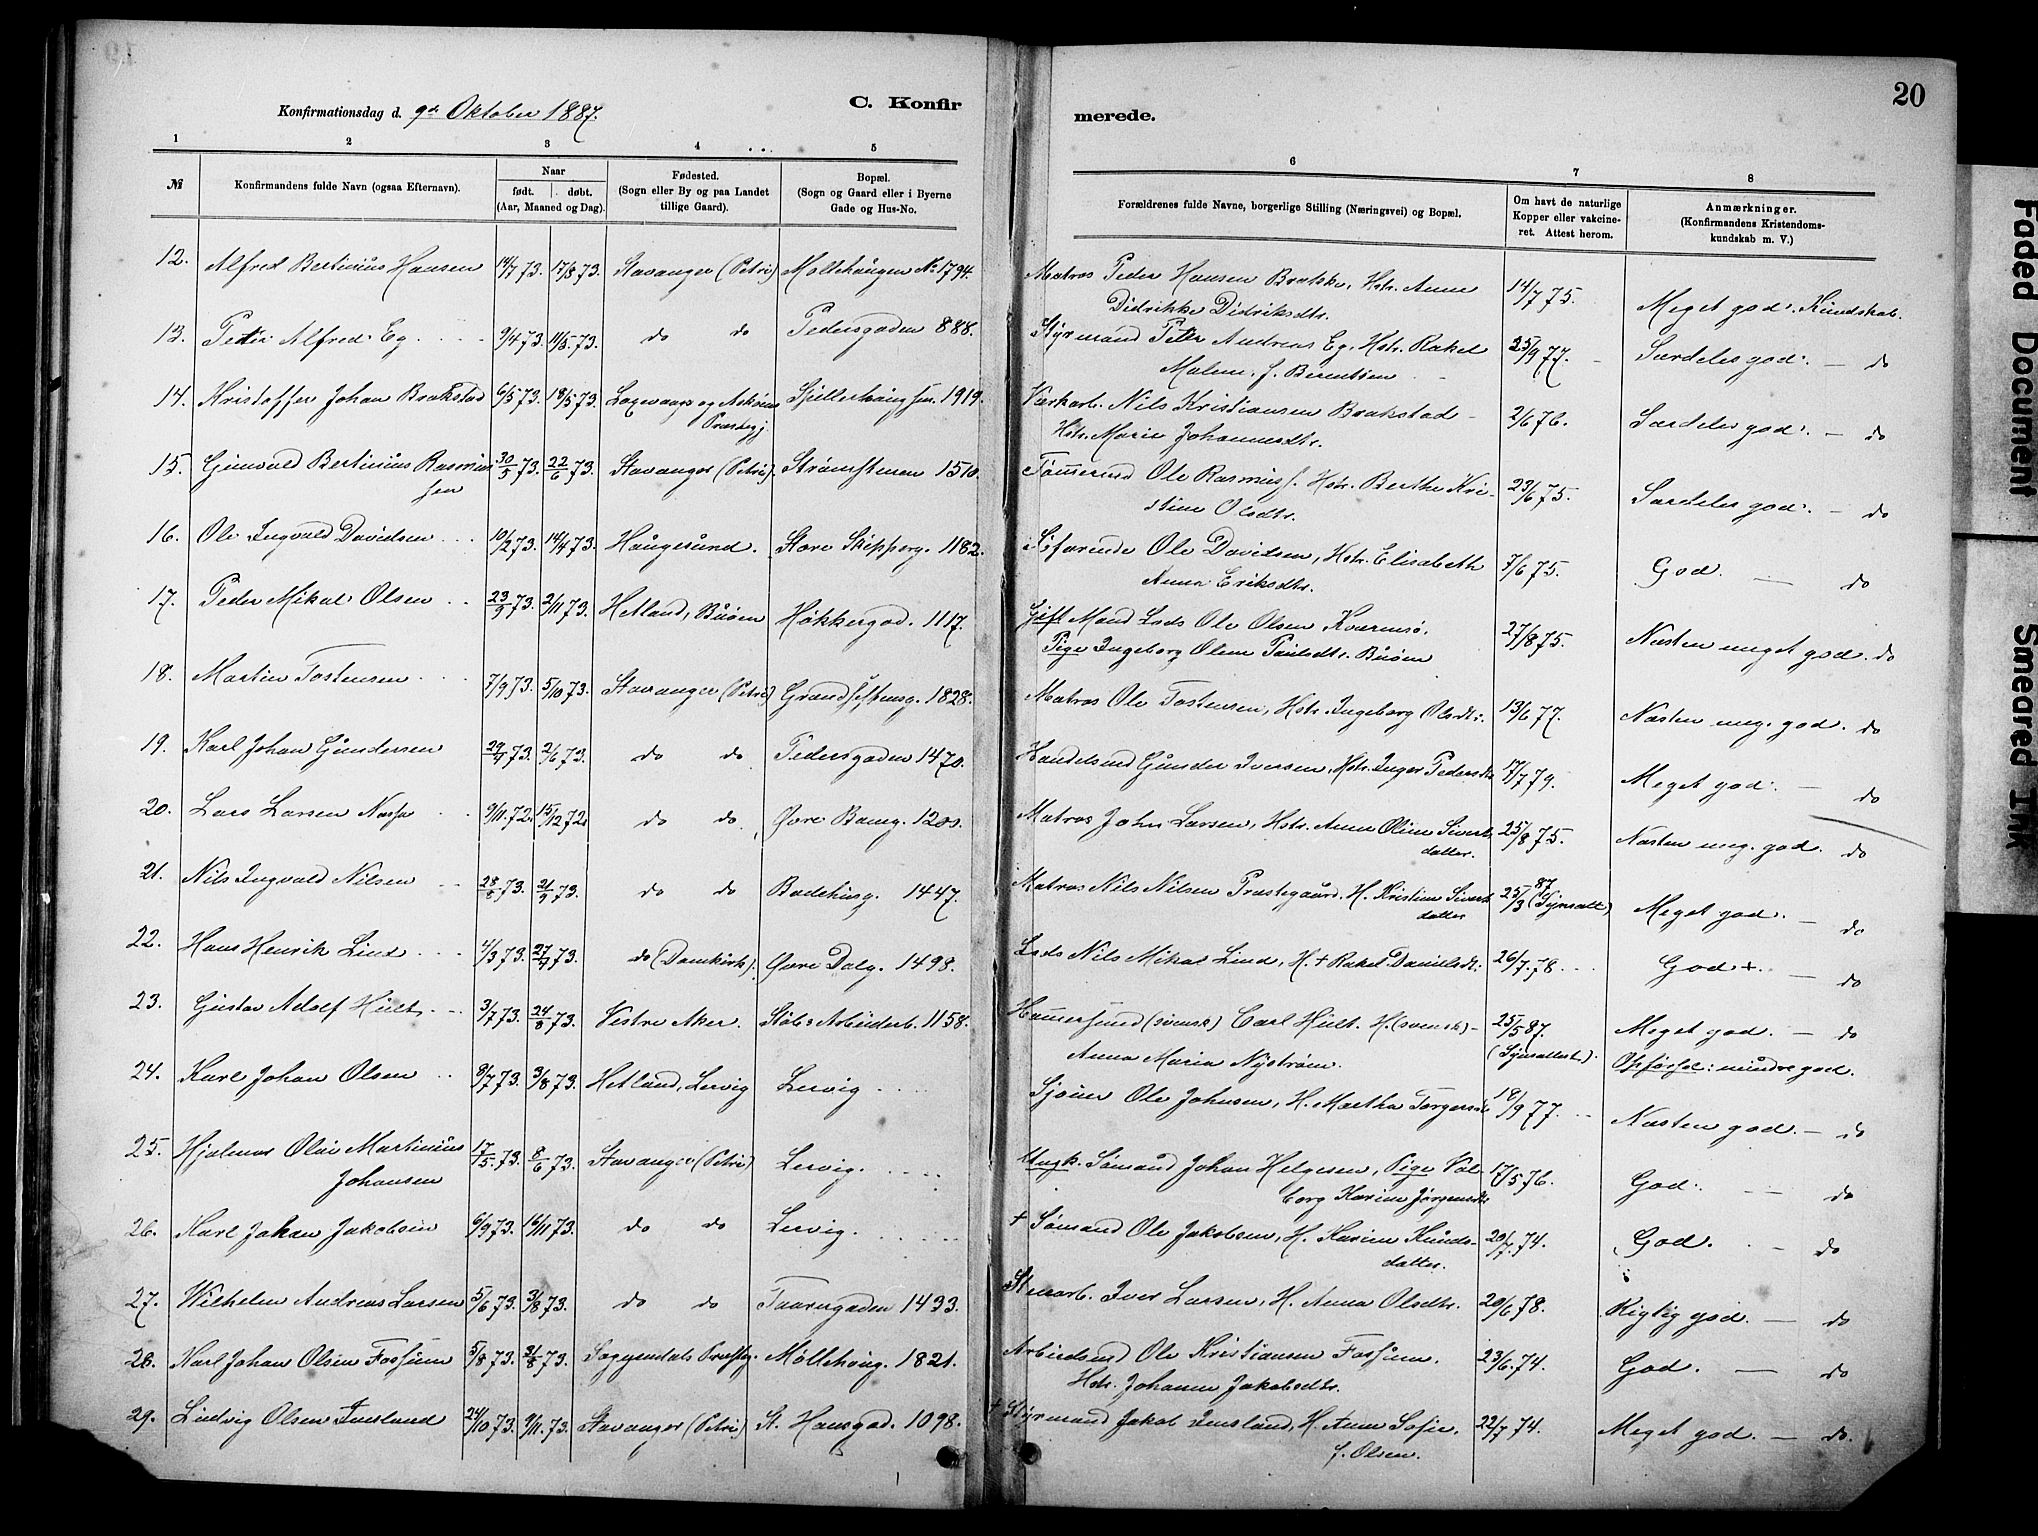 Konfirmationsdag d. 9de Oktober 1887.
C. Konfir
merede.
20
1 2 3 4 5 6 7 8
№
Konfirmandens fulde Navn (ogsaa Efternavn).
Naar
født. døbt.
(Aar, Maaned og Dag).
Fødested.
(Sogn eller By og paa Landet
tillige Gaard).
Bopæl.
(Sogn og Gaard eller i Byerne
Gade og Hus-No.
Forældrenes fulde Navne, borgerlige Stilling (Næringsvei) og Bopæl.
Om havt de naturlige
Kopper eller vakcine-
ret. Attest herom.
Anmærkninger.
(Konfirmandens Kristendoms-
kundskab m. V.)
12. Alfred Bertinius Hansen 14/7 73. 17/8 73. Stavanger (Petri) Møllehaugen No 1794. Matros Peder Hansen Bratske, Hstr. Anne 14/7 75. Meget god. Kundskab.
Didrikke Didriksdtr.
13. Peter Alfred Eg 9/4 73. 11/5 73. do do Pedersgaden 888. Styrmand Peter Andreas Eg, Hstr. Rakel 25/9 77. Særdeles god. — do
Malene f. Berentsen
14. Kristoffer Johan Brakstad 6/5 73. 18/5 73. Præstegj. 1919. Nils Kristiansen Brakstad 2/6 76. Særdeles god. — do
Hstr. Marie Johannesdtr.
15. Gunvald Bertinius Rasmus- 30/5 73. 22/6 73. Stavanger (Petri). Strømstenen 1510. Tømmermd Ole Rasmuss. Hstr. Berthe Kri- 23/6 75. Særdeles god. — do
sen
stine Olsdtr.
16. Ole Ingvald Davidsen 10/2 73. 14/4 73. Haugesund. Store Skipperg. 1182. Søfarende Ole Davidsen, Hstr. Elisabeth 7/6 75. God. — do
Anna Eriksdtr.
17. Peder Mikal Olsen 23/9 73. 2/11 73. Hetland, Buøen Høkkergad. 1117. Gift Mand Lods Ole Olsen Kværnsø. 27/8 75. Næsten meget god. do
Pige Ingeborg Olene Paulsdtr. Buøen
18. Martin Tostensen 7/9 73. 5/10 73. Stavanger (Petri) 1828. Matros Ole Tostensen, Hstr. Ingeborg Olsdtr. 13/6 77. Næsten meg. god. do
19. Karl Johan Gundersen 73. 2/6 73. do do Pedersgaden 1470. Handelsmd Gunder Iversen, Hstr. Inger Pedersdtr 17/7 79. Meget god. — do
20. Lars Larsen Næsse 9/11 72. 15/12 72. do do Øvre Bang. Matros John Larsen, Hstr. Anne Oline Sivert- 25/8 75. Næsten meg. god. do
datter.
21. Nils Ingvald Nilsen 28/8 73. 21/9 73. do do Badehusg. 1447. Matros Nils Nilsen Prestegaard, H. Kristine Siverts- 25/3 87 (Synsatt.) Meget god. — do
datter
22. Hans Henrik Lind 4/3 73. 27/9 73. do (Domkirk.) Øvre Dalg. 1498. Lods Nils Mikal Lind, H. + Rakel Danielsdt. 26/7 78. God +. — do
23. Gustav Adolf Hult 3/7 73. 24/8 73. Vestre Aker. Støbs Arbeiderb. 1158. Hammersmd (svensk) Carl Hult. H. (svensk) 25/5 87. Meget god. — do
Anna Maria Nyström. (Synsattest). Opførsel: mindre god.
24. Karl Johan Olsen 8/7 73. 3/8 73. Hetland, Lervig Lervig Sjøm Ole Johnsen, H. Martha Torgersd. 18/9 77. Næsten god. — do
25. Hjalmar Olai Martinius 17/5 73. 8/6 73. Stavanger (Petri) Lervig. Ungk. Sømand Johan Helgesen, Pige Val- 17/5 76. God. — do
Johansen
borg Karine Jørgensdt.
26. Karl Johan Jakobsen 6/9 73. 16/11 73. do do Lervig. + Sømand Ole Jakobsen, H. Karine Knuds- 20/7 74. God. — do
datter.
27. Wilhelm Andreas Larsen 5/6 73. 3/8 73. do do Taarngaden 1433. Stenarb. Iver Larsen, H. Anna Olsdtr. 20/6 78. Rigtig god. — do
28. Karl Johan Olsen Fossum 5/8 73. 31/8 73. Sogndals Præsteg. Møllehaug. 1821. Arbeidsmd Ole Kristiansen Fossum. 23/6 74. God. — do
Hstr. Johanne Jakobsdtr.
29. Ludvig Olsen Imsland 24/10 73. 9/11 73. Stavanger (Petri) St. Hansgad. 1098. + Styrmand Jakob Imsland, H. Anne Sofie 22/7 74. Meget god. — do
f. Olsen.
Faded Document
Smeared Ink